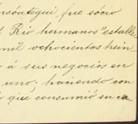 fué sócio
Rio hermanos establ
mil ochocientos trein
á sus negocios en
uno, haciendo con
que consumió en ca